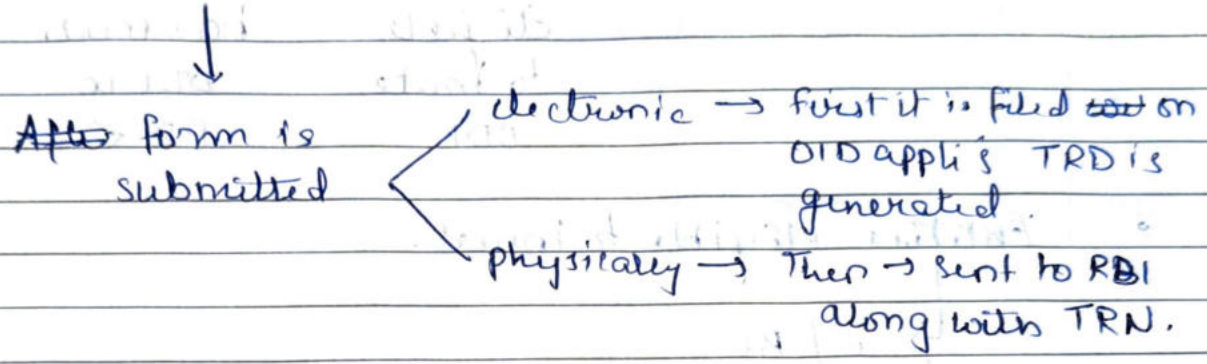 form is
submitted
electronic → first it is filed on
OID appli & TRD is
generated.
physically → Then → sent to RBI
along with TRN.